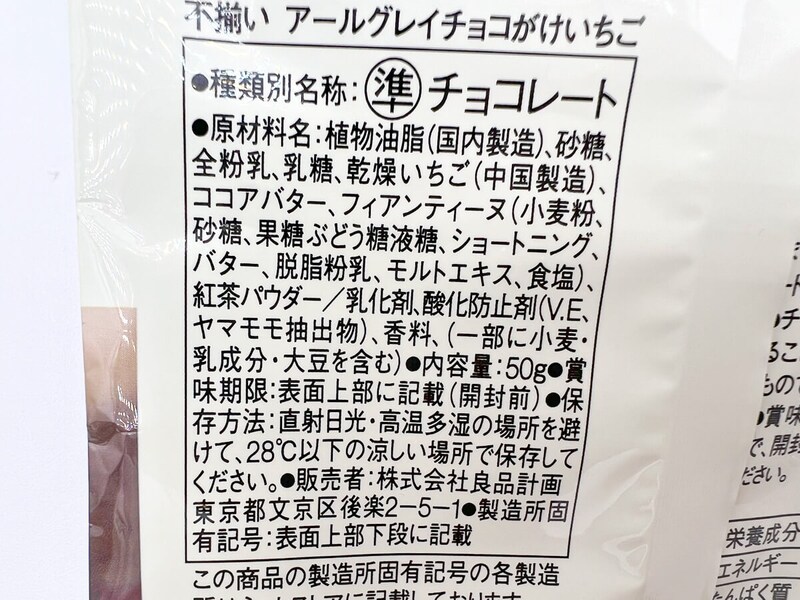 不揃い アールグレイチョコがけいちご
●種類別名称:準チョコレート
●原材料名:植物油脂(国内製造)、砂糖、
全粉乳、乳糖、乾燥いちご(中国製造)、
ココアバター、フィアンティーヌ(小麦粉、
砂糖、果糖ぶどう糖液糖、ショートニング、
バター、脱脂粉乳、モルトエキス、食塩)、
紅茶パウダー/乳化剤、酸化防止剤(V.E、
ヤマモモ抽出物)、香料、(一部に小麦・
乳成分・大豆を含む)●内容量:50g●賞
味期限:表面上部に記載(開封前)●保
存方法:直射日光・高温多湿の場所を避
けて、28℃以下の涼しい場所で保存して
ください。●販売者:株式会社良品計画
東京都文京区後楽2-5-1●製造所固
有記号:表面上部下段に記載
この商品の製造所固有記号の各製造
●チ
るこ
もので
●賞味
で、開封
ださい。
栄養成分
エネルギー
たんぱく質